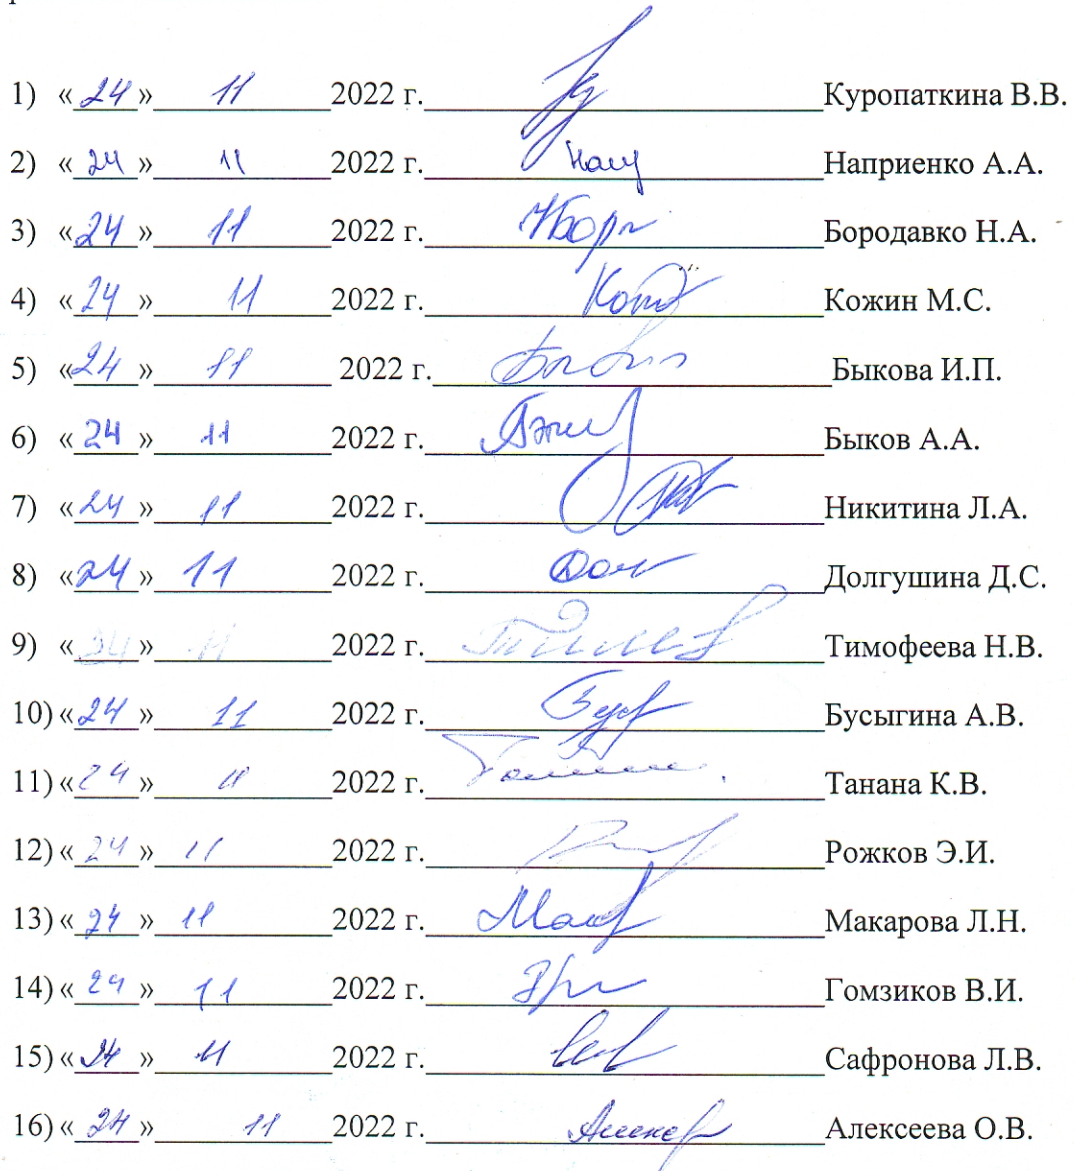 1) «24» 11 2022 г. Куропаткина В.В.
2) «24» 11 2022 г. Наприенко А.А.
3) «24» 11 2022 г. Бородавко Н.А.
4) «24» 11 2022 г. Кожин М.С.
5) «24» 11 2022 г. Быкова И.П.
6) «24» 11 2022 г. Быков А.А.
7) «24» 11 2022 г. Никитина Л.А.
8) «24» 11 2022 г. Долгушина Д.С.
9) «24» 11 2022 г. Тимофеева Н.В.
10) «24» 11 2022 г. Бусыгина А.В.
11) «24» 11 2022 г. Танана К.В.
12) «24» 11 2022 г. Рожков Э.И.
13) «24» 11 2022 г. Макарова Л.Н.
14) «24» 11 2022 г. Гомзиков В.И.
15) «24» 11 2022 г. Сафронова Л.В.
16) «24» 11 2022 г. Алексеева О.В.